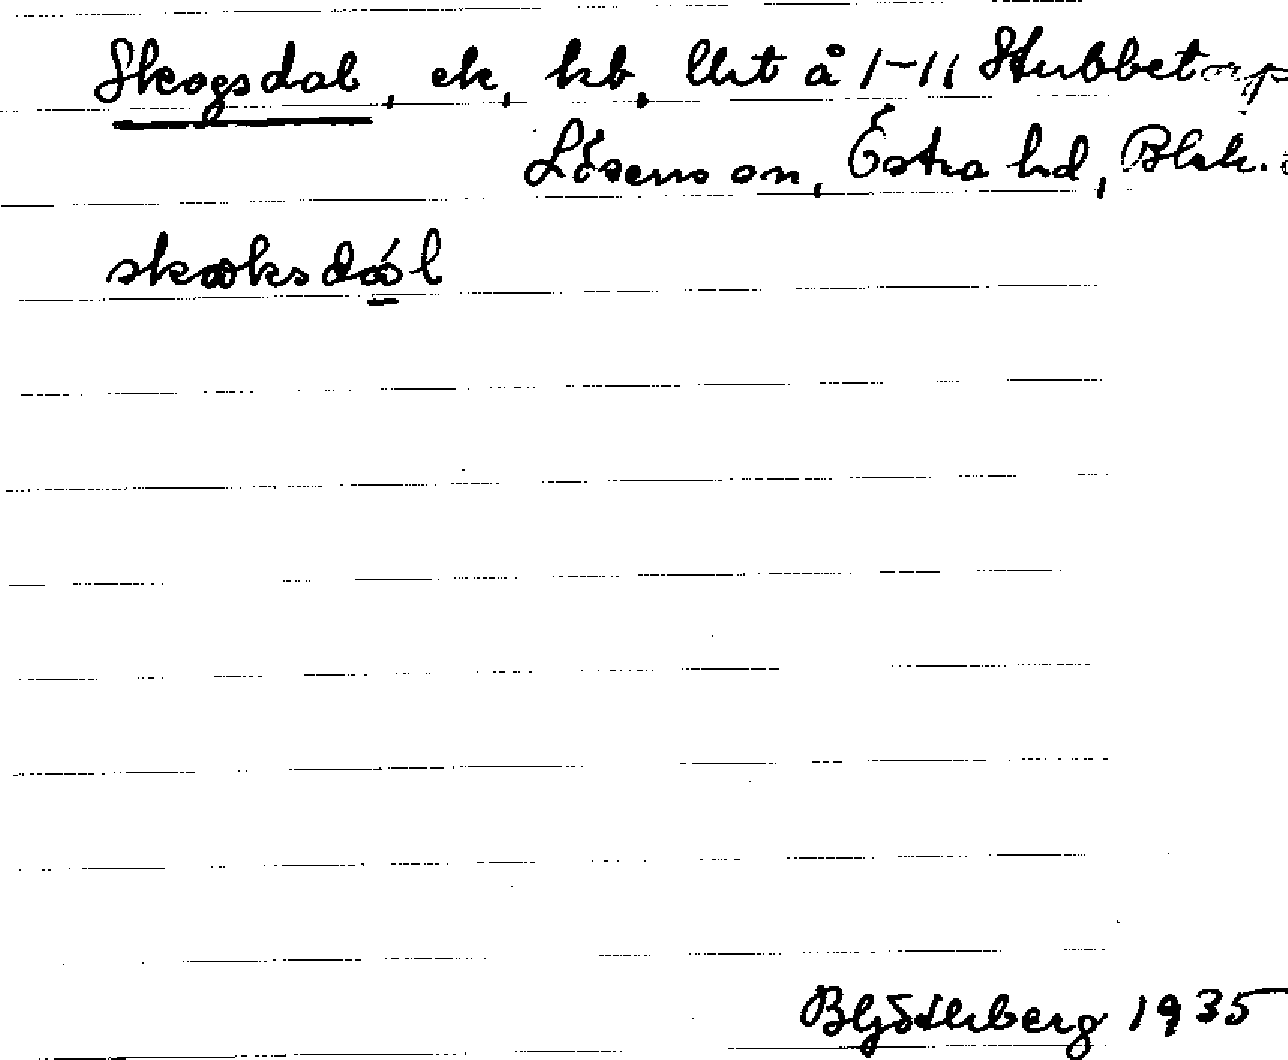 Skogsdal, ek, kb, lht å 1-11 Stubbetorp
Lösens sn, Östra hd, Blek.
skɷksdɑ́l
Bljöthberg 1935